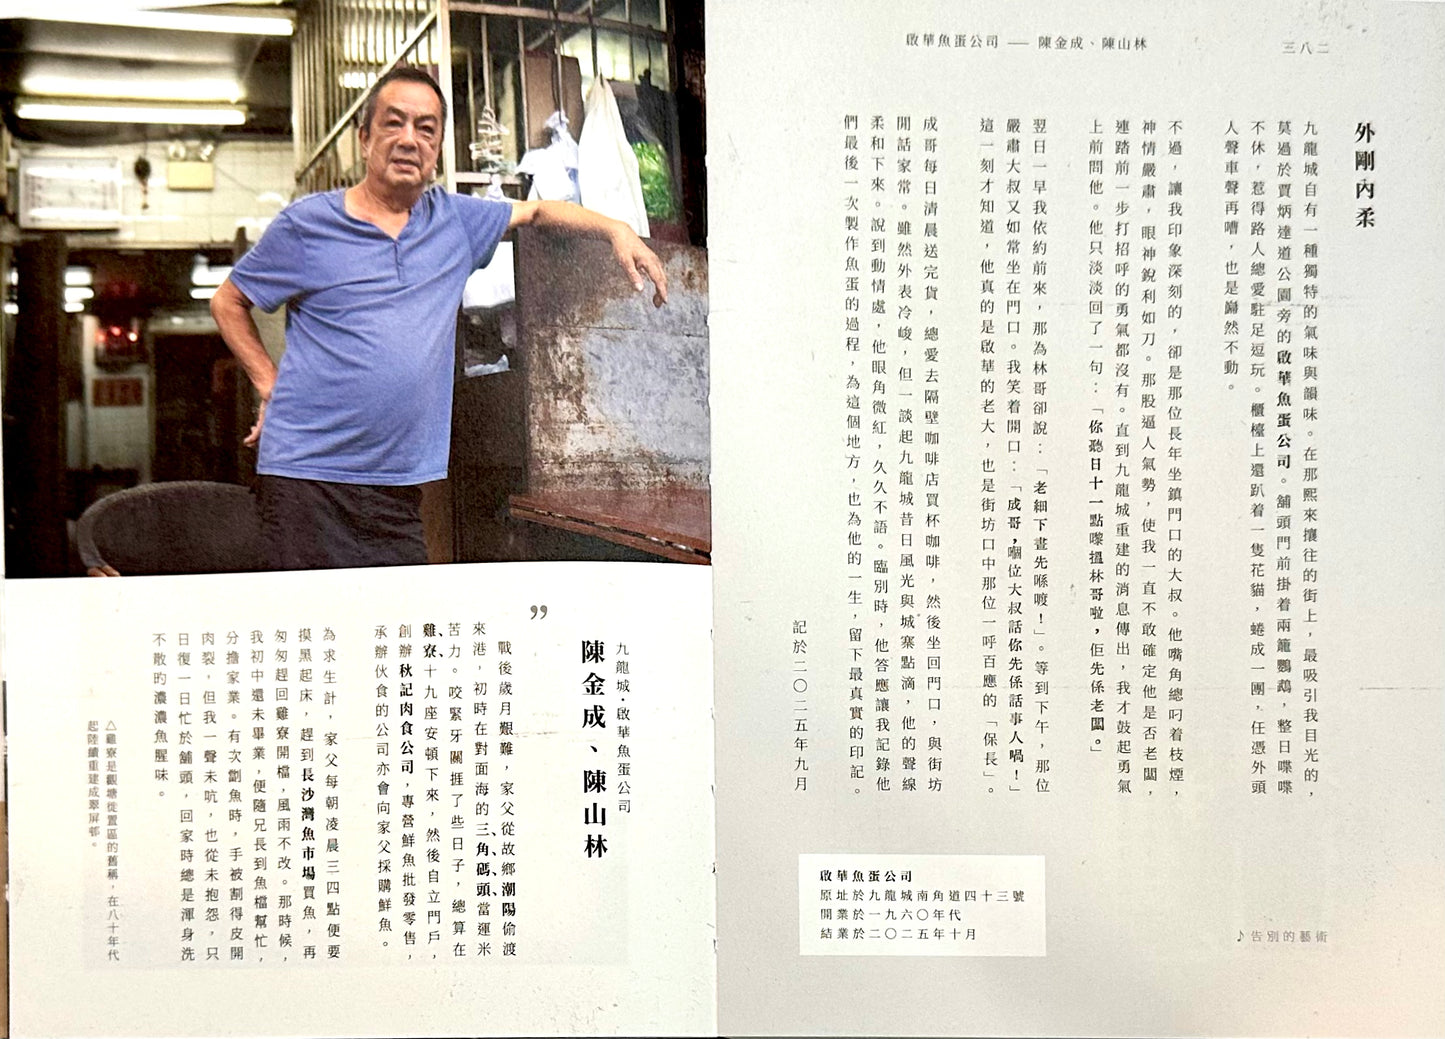 啟華魚蛋公司 — 陳金成、陳山林
三八二
外剛內柔
九龍城自有一種獨特的氣味與韻味。在那熙來攘往的街上，最吸引我目光的，
莫過於賈炳達道公園旁的啟華魚蛋公司。舖頭門前掛着兩籠鸚鵡，整日喋喋
不休，惹得路人總愛駐足逗玩。櫃檯上還趴着一隻花貓，蜷成一團，任憑外頭
人聲車聲再嘈，也是巋然不動。
不過，讓我印象深刻的，卻是那位長年坐鎮門口的大叔。他嘴角總叼着枝煙，
神情嚴肅，眼神銳利如刀。那股逼人氣勢，使我一直不敢確定他是否老闆，
連踏前一步打招呼的勇氣都沒有。直到九龍城重建的消息傳出，我才鼓起勇氣
上前問他。他只淡淡回了一句：「你聽日十一點嚟搵林哥啦，佢先係老闆。」
翌日一早我依約前來，那為林哥卻說：「老細下晝先喺度！」。等到下午，那位
嚴肅大叔又如常坐在門口。我笑着開口：「成哥，嗰位大叔話你先係話事人喎！」
這一刻才知道，他真的是啟華的老大，也是街坊口中那位一呼百應的「保長」。
成哥每日清晨送完貨，總愛去隔壁咖啡店買杯咖啡，然後坐回門口，與街坊
閒話家常。雖然外表冷峻，但一談起九龍城昔日風光與城寨點滴，他的聲線
柔和下來。說到動情處，他眼角微紅，久久不語。臨別時，他答應讓我記錄他
們最後一次製作魚蛋的過程，為這個地方，也為他的一生，留下最真實的印記。
記於二〇二五年九月
啟華魚蛋公司
原址於九龍城南角道四十三號
開業於一九六〇年代
結業於二〇二五年十月
♪告別的藝術
九龍城・啟華魚蛋公司
陳金成、陳山林
”
戰後歲月艱難，家父從故鄉潮陽偷渡
來港，初時在對面海的三角碼頭當運米
苦力。咬緊牙關捱了些日子，總算在
雞寮十九座安頓下來，然後自立門戶，
創辦秋記肉食公司，專營鮮魚批發零售，
承辦伙食的公司亦會向家父採購鮮魚。
為求生計，家父每朝凌晨三四點便要
摸黑起床，趕到長沙灣魚市場買魚，再
匆匆趕回雞寮開檔，風雨不改。那時候，
我初中還未畢業，便隨兄長到魚檔幫忙，
分擔家業。有次劏魚時，手被割得皮開
肉裂，但我一聲未吭，也從未抱怨，只
日復一日忙於舖頭，回家時總是渾身洗
不散的濃濃魚腥味。
△雞寮是觀塘徙置區的舊稱，在八十年代
起陸續重建成翠屏邨。